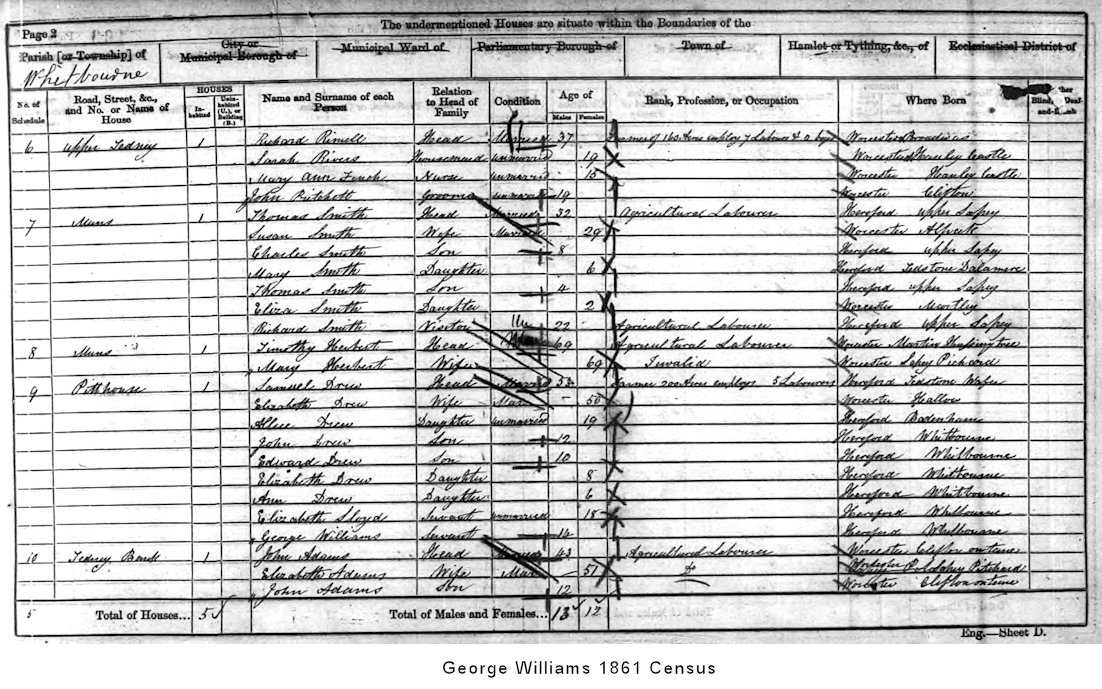 The undermentioned Houses are situate within the Boundaries of the
Page 2
Parish [or Township] of City or Municipal Borough of Municipal Ward of Parliamentary Borough of Town of Hamlet or Tything, &c., of Ecclesiastical District of
Whitbourne
No. of Schedule Road, Street, &c., and No. or Name of House HOUSES Inhabited Uninhabited (U.), or Building (B.) Name and Surname of each Person Relation to Head of Family Condition Age of Males Females Rank, Profession, or Occupation Where Born
6 Upper Tedney 1 Richard Head Married 37 Farmer of 160 Acres employ 7 Labour & 2 boys Worcester Broadwas
Sarah Rivers Housemaid Unmarried 19 Worcester Hanley Castle
Mary Ann Finch Nurse Unmarried 15 Worcester Hanley Castle
John Pritchett Groom Unmarried 19 Worcester Clifton
7 Muns 1 Thomas Smith Head Married 32 Agricultural Labourer Hereford Upper Sapey
Susan Smith Wife Married 29 Worcester Alfrick
Charles Smith Son 8 Hereford Upper Sapey
Mary Smith Daughter 6 Hereford Tedstone Delamere
Thomas Smith Son 4 Hereford Upper Sapey
Eliza Smith Daughter 2 Worcester Martley
Richard Smith Visitor Un 22 Agricultural Labourer Hereford Upper Sapey
8 Muns 1 Timothy Herbert Head Mar 69 Agricultural Labourer Worcester Martin Hussingtree
Mary Herbert Wife 69 Invalid Worcester Sapey Pichard
9 Pitthouse 1 Samuel Drew Head Married 53 Farmer 200 Acres employs 5 Labourers Hereford Tedstone Wafer
Elizabeth Drew Wife Mar 50 Worcester Hallow
Allice Drew Daughter Unmarried 19 Hereford Bodenham
John Drew Son 12 Hereford Whitbourne
Edward Drew Son 10 Hereford Whitbourne
Elizabeth Drew Daughter 8 Hereford Whitbourne
Ann Drew Daughter 6 Hereford Whitbourne
Elizabeth Lloyd Servant Unmarried 18 Hereford Whitbourne
George Williams Servant 14 Hereford Whitbourne
10 Tedney Bank 1 John Adams Head Married 43 Agricultural Labourer Worcester Clifton on teme
Elizabeth Adams Wife Mar 51 Do Worcester Sapey Pitchard
John Adams Son 12 Worcester Clifton on teme
5 Total of Houses... 5 Total of Males and Females... 13 12
Eng.—Sheet D.
George Williams 1861 Census